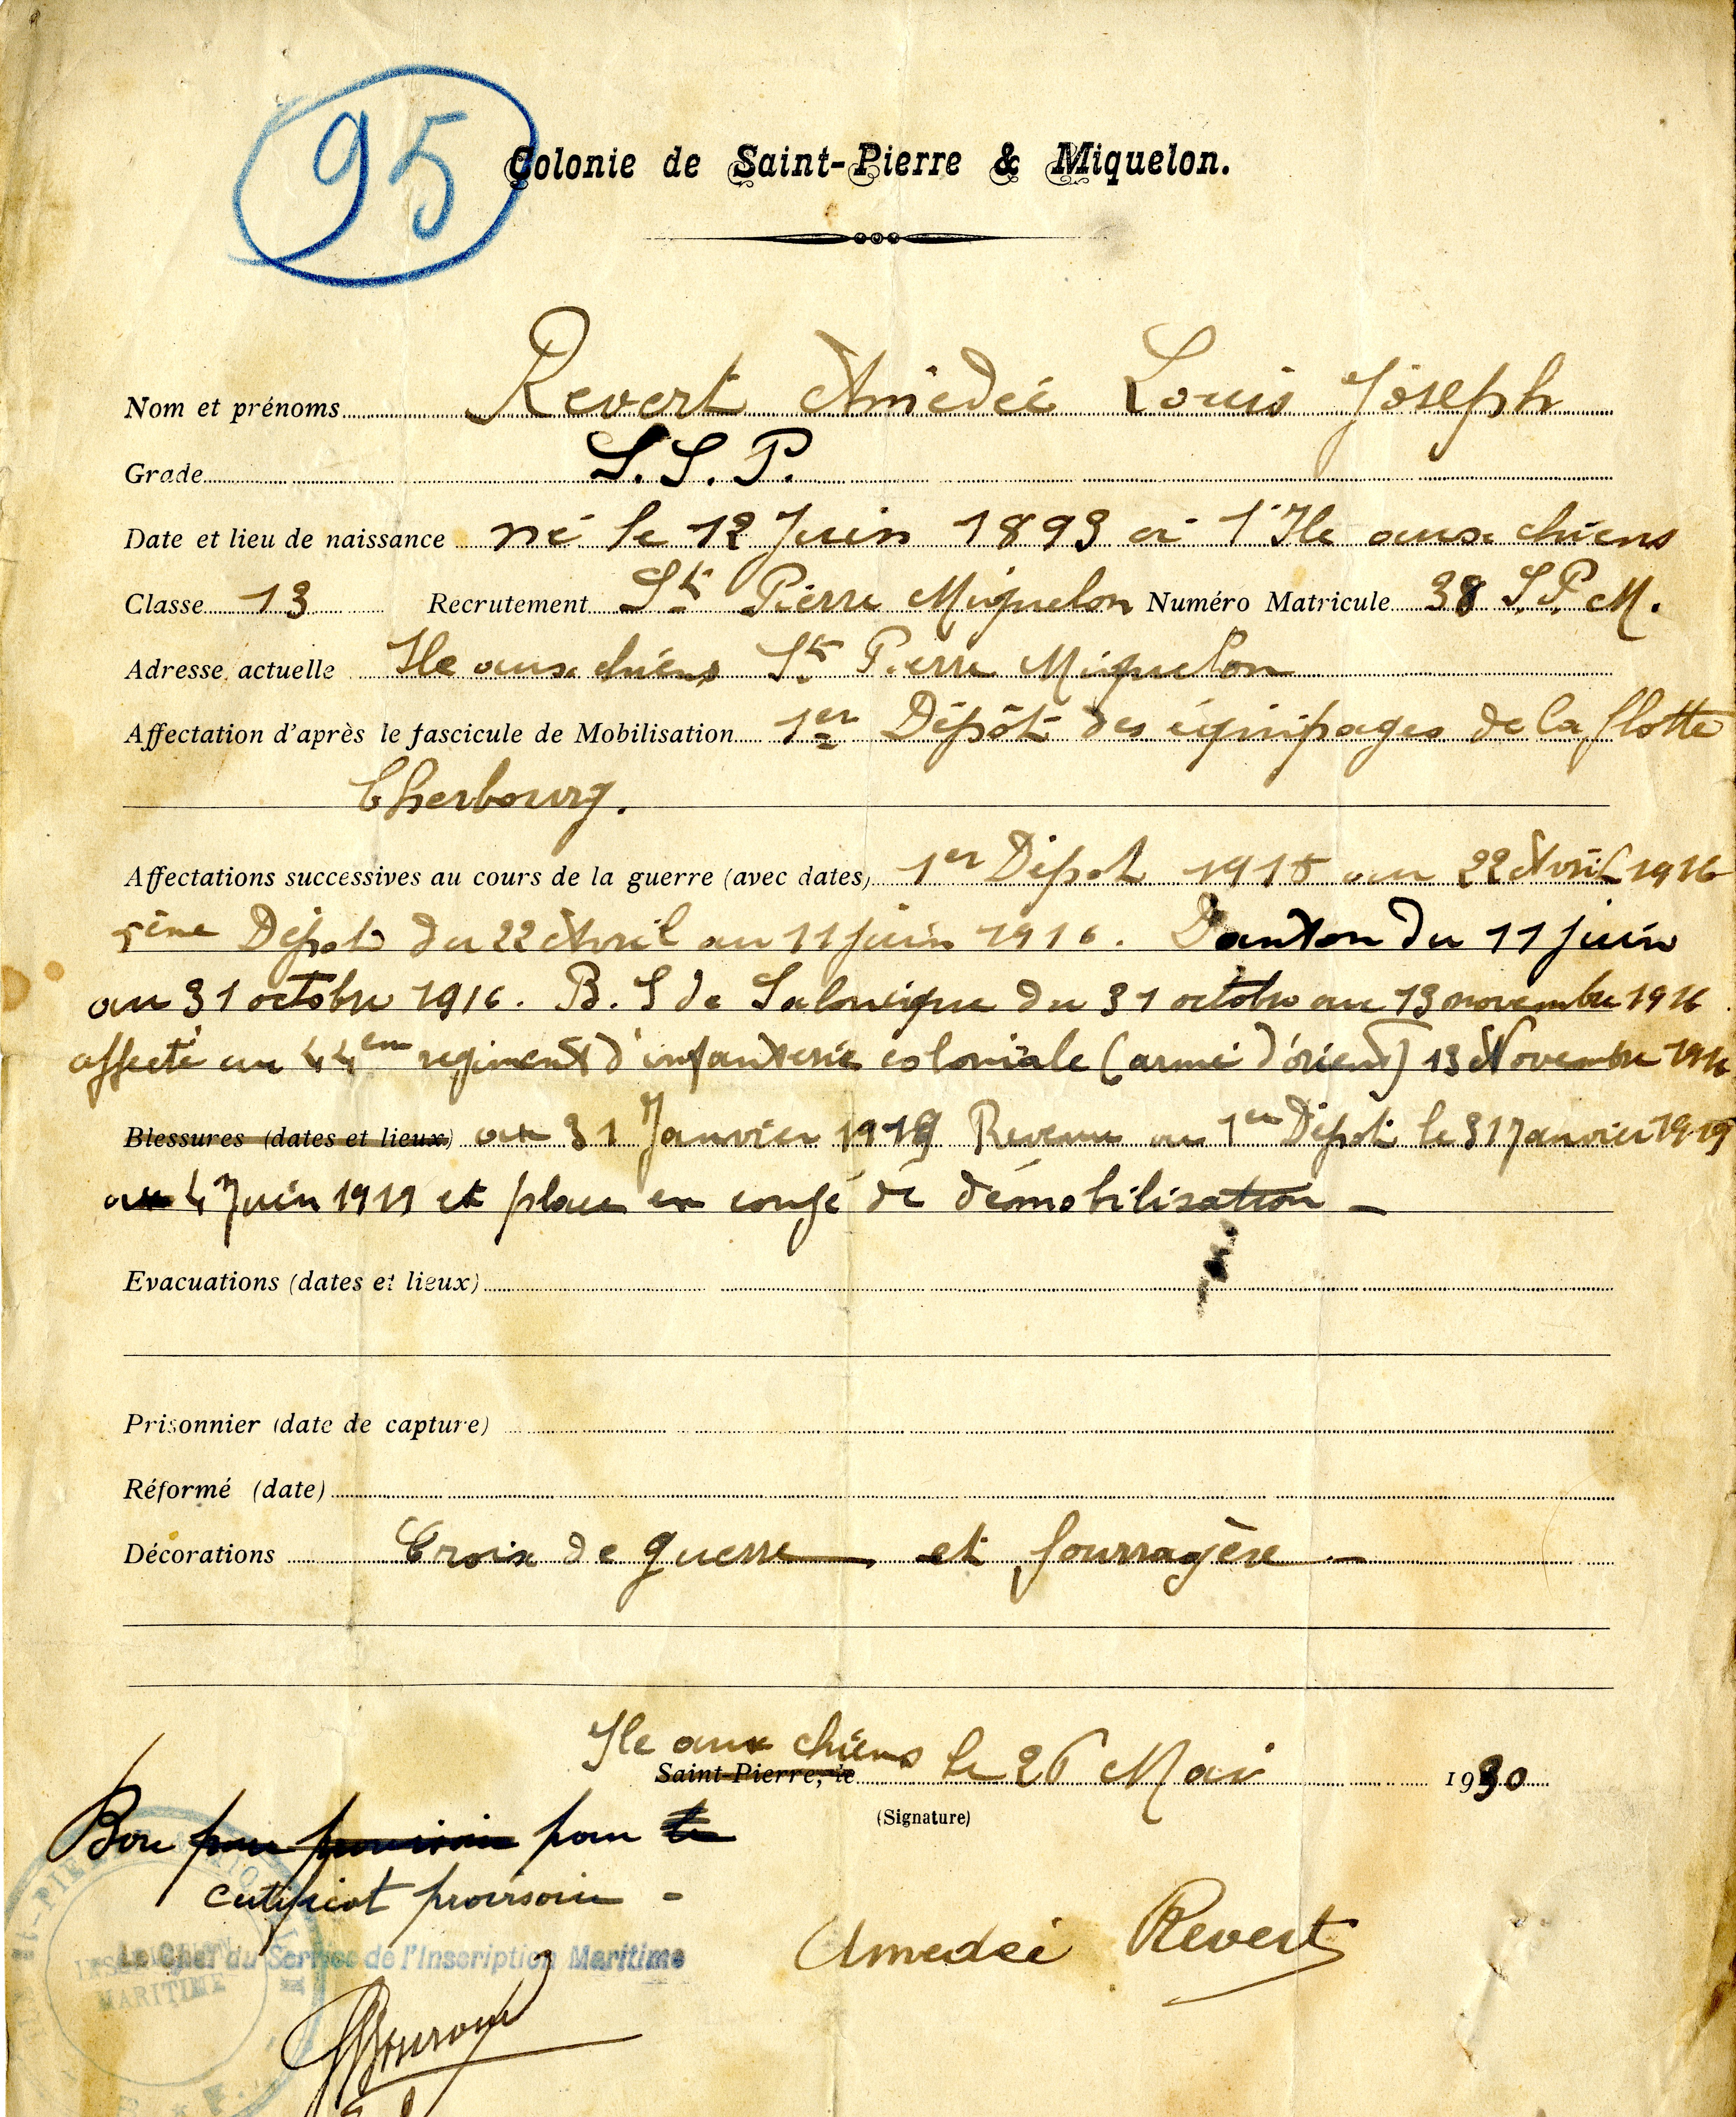 95
Colonie de Saint-Pierre & Miquelon.
Nom et prénoms Revert Amédée Louis Joseph
Grade S.S.P.
Date et lieu de naissance né le 12 Juin 1893 à l'Ile aux chiens
Classe 13 Recrutement St Pierre Miquelon Numéro Matricule 38 S.P.M.
Adresse actuelle Ile aux chiens St Pierre Miquelon
Affectation d'après le fascicule de Mobilisation 1er Dépôt des équipages de la flotte
Cherbourg.
Affectations successives au cours de la guerre (avec dates) 1er Dépot 1915 au 22 Avril 1916
5ème Dépot du 22 Avril au 11 juin 1916. Danton du 11 juin
au 31 octobre 1916. B. S de Salonique du 31 octobre au 13 novembre 1916
affecté au 44em regiment d'infanterie coloniale (armé d'orient) 13 Novembre 1916
Blessures (dates et lieux) au 31 Janvier 1919 Revenu au 1er Dépôt le 31 Janvier 1919
au 4 Juin 1919 et placé en congé de démobilisation —
Evacuations (dates et lieux)
Prisonnier (date de capture)
Réformé (date)
Décorations Croix de guerre — et fourragère —
Ile aux chiens le 26 Mai 1930
Saint-Pierre, le
(Signature)
Bon pour provisoire pour le
certificat provisoire -
Amedée Revert
Le Chef du Service de l'Inscription Maritime
INSCRIPTION
MARITIME